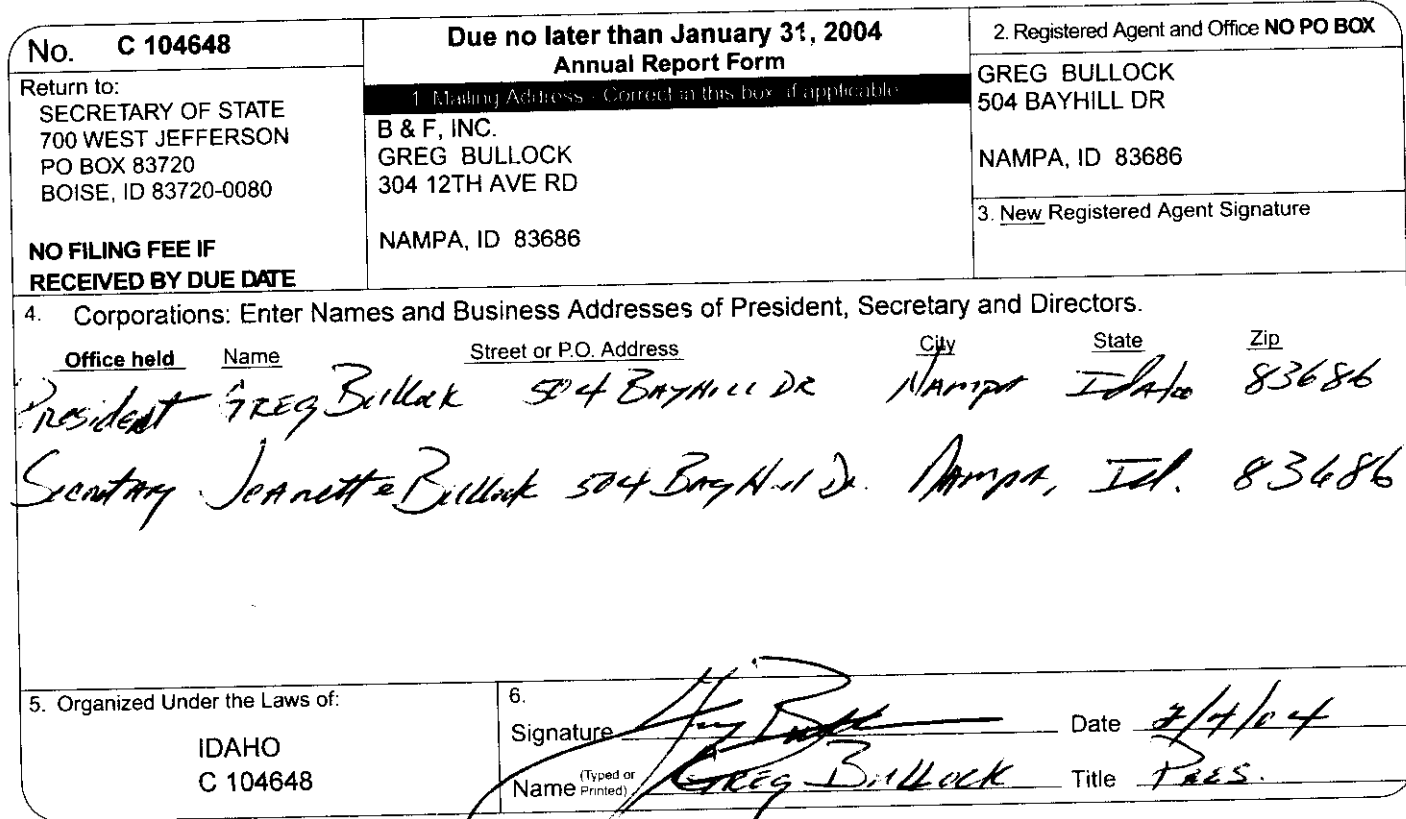 No. C 104648
Return to:
SECRETARY OF STATE
700 WEST JEFFERSON
PO BOX 83720
BOISE, ID 83720-0080
NO FILING FEE IF
RECEIVED BY DUE DATE
Due no later than January 31, 2004
Annual Report Form
1. Mailing Address - Correct in this box, if applicable
B & F, INC.
GREG BULLOCK
304 12TH AVE RD
NAMPA, ID 83686
2. Registered Agent and Office NO PO BOX
GREG BULLOCK
504 BAYHILL DR
NAMPA, ID 83686
3. New Registered Agent Signature
4. Corporations: Enter Names and Business Addresses of President, Secretary and Directors.
Office held Name Street or P.O. Address City State Zip
President GREG Bullock 504 BAYHILL DR NAMPA Idaho 83686
Secretary Jeanette Bullock 504 Bay Hill Dr. NAMPA, Id. 83686
5. Organized Under the Laws of:
IDAHO
C 104648
6.
Signature Date /04
Name (Typed or Printed) GREG Bullock Title PRES.